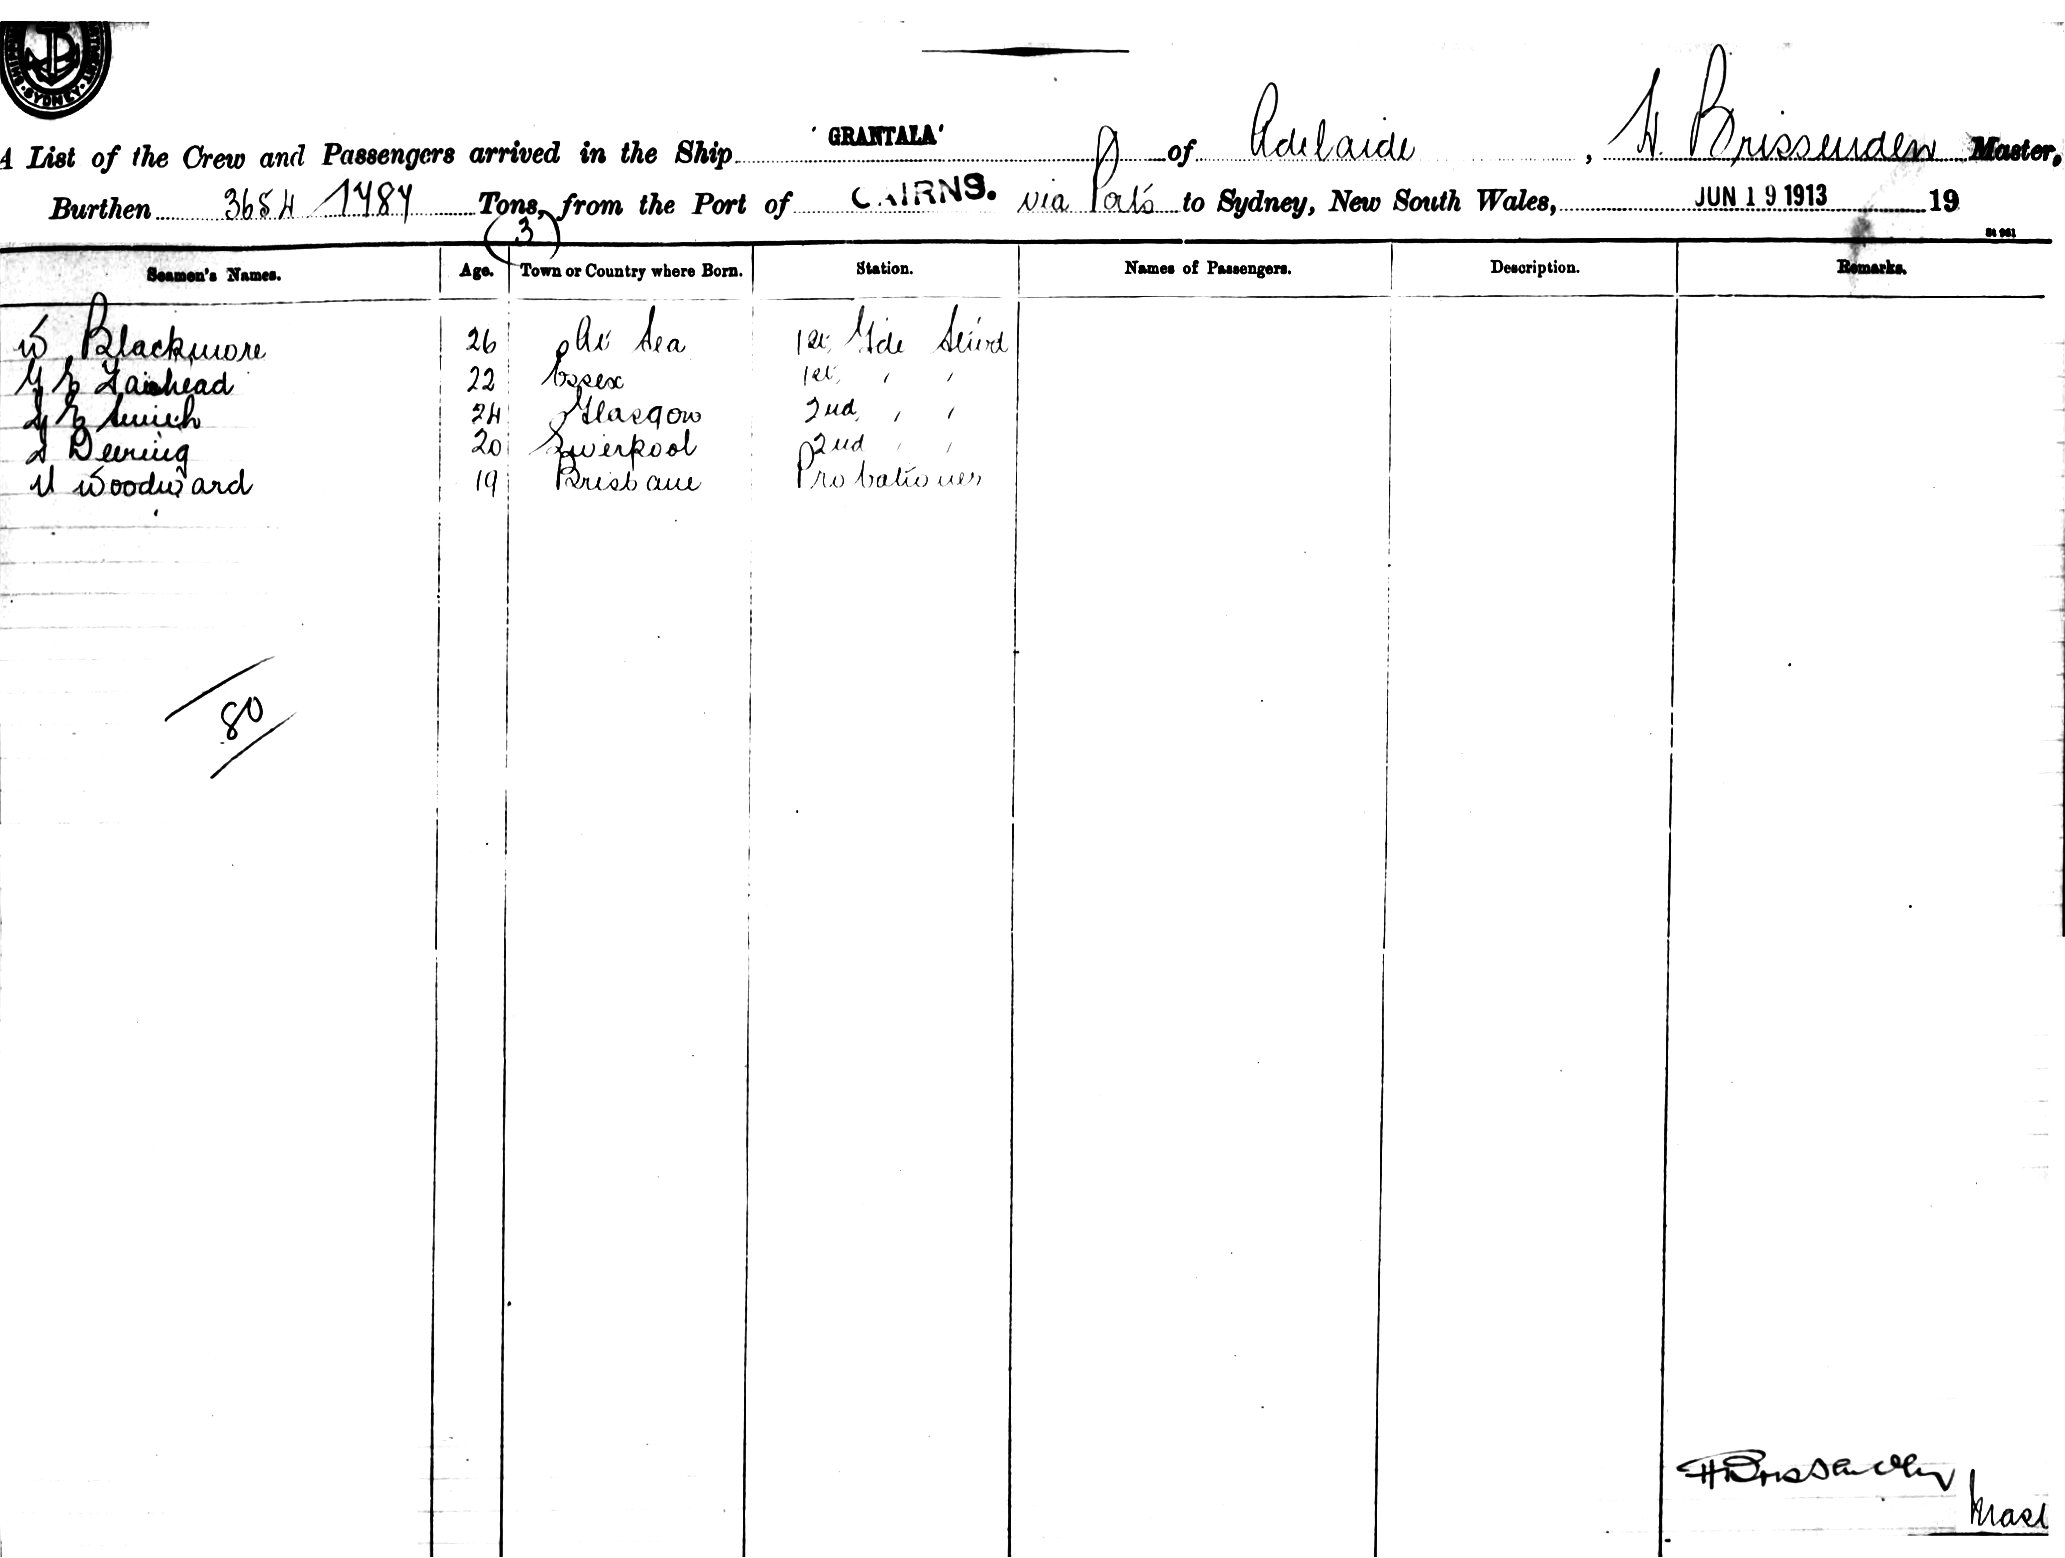 SYDNEY
A List of the Crew and Passengers arrived in the Ship 'GRANTALA' of Adelaide, H. Brissenden Master,
Burthen 3654 1787 Tons, from the Port of CAIRNS. via Ports to Sydney, New South Wales, JUN 19 1913 19
(3)
St 961
Seamen's Names. Age. Town or Country where Born. Station. Names of Passengers. Description. Remarks.
W Blackmore 26 At Sea 1st Gde Stwd
G E Fairhead 22 Essex 1st " "
E Smith 24 Glasgow 2nd " "
Deering 20 Liverpool 2nd " "
Woodward 19 Brisbane Probationer
80
H Brissenden
Mast